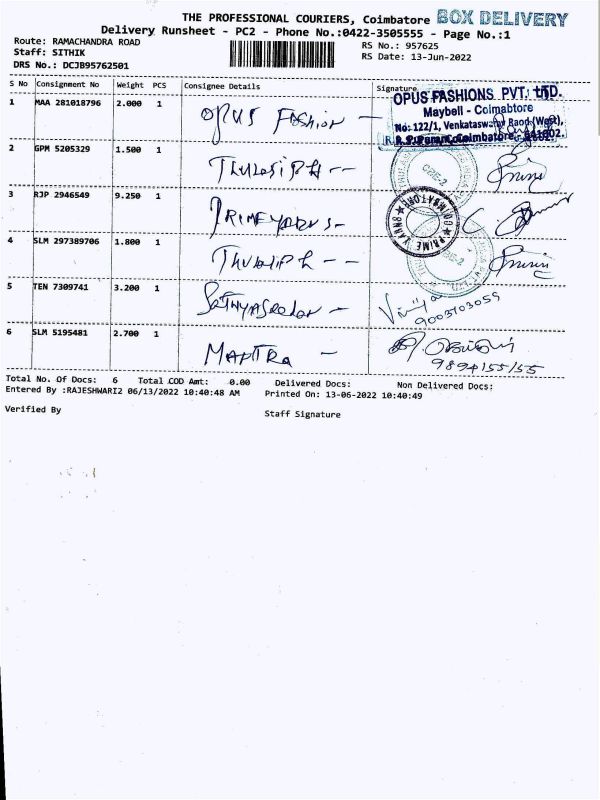 THE PROFESSIONAL COURIERS, Coimbatore BOX DELIVERY
Delivery Runsheet - PC2 - Phone No.:0422-3505555 - Page No.:1
Route: RAMACHANDRA ROAD
RS No.: 957625
Staff: SITHIK
RS Date: 13-Jun-2022
DRS No.: DCJB95762501
S No Consignment No Weight PCS Consignee Details Signature
1 MAA 281018796 2.000 1 OPUS Fashion -
OPUS FASHIONS PVT. LTD.
Maybell - Coimbatore
No: 122/1, Venkataswamy Raod (West),
R.S.Puram, Coimbatore
2 GPM 5205329 1.500 1 Thulasi Ph --
3 RJP 2946549 9.250 1 PRIME YARNS -
PRIME YARNS COIMBATORE
4 SLM 297389706 1.800 1 Thulasi Ph --
5 TEN 7309741 3.200 1
9003703055
6 SLM 5195481 2.700 1 MAPTRA -
9894155155
Total No. Of Docs: 6 Total COD Amt: 0.00 Delivered Docs: Non Delivered Docs:
Entered By :RAJESHWARI2 06/13/2022 10:40:48 AM Printed On: 13-06-2022 10:40:49
Verified By
Staff Signature